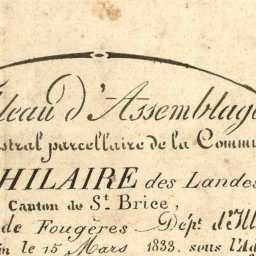 leau d'Assemblage
stral parcellaire de la Commu
HILAIRE des Landes
Canton de St. Brice,
de Fougères Dépt. d'Ill
le 15 Mars 1833. sous l'Ad